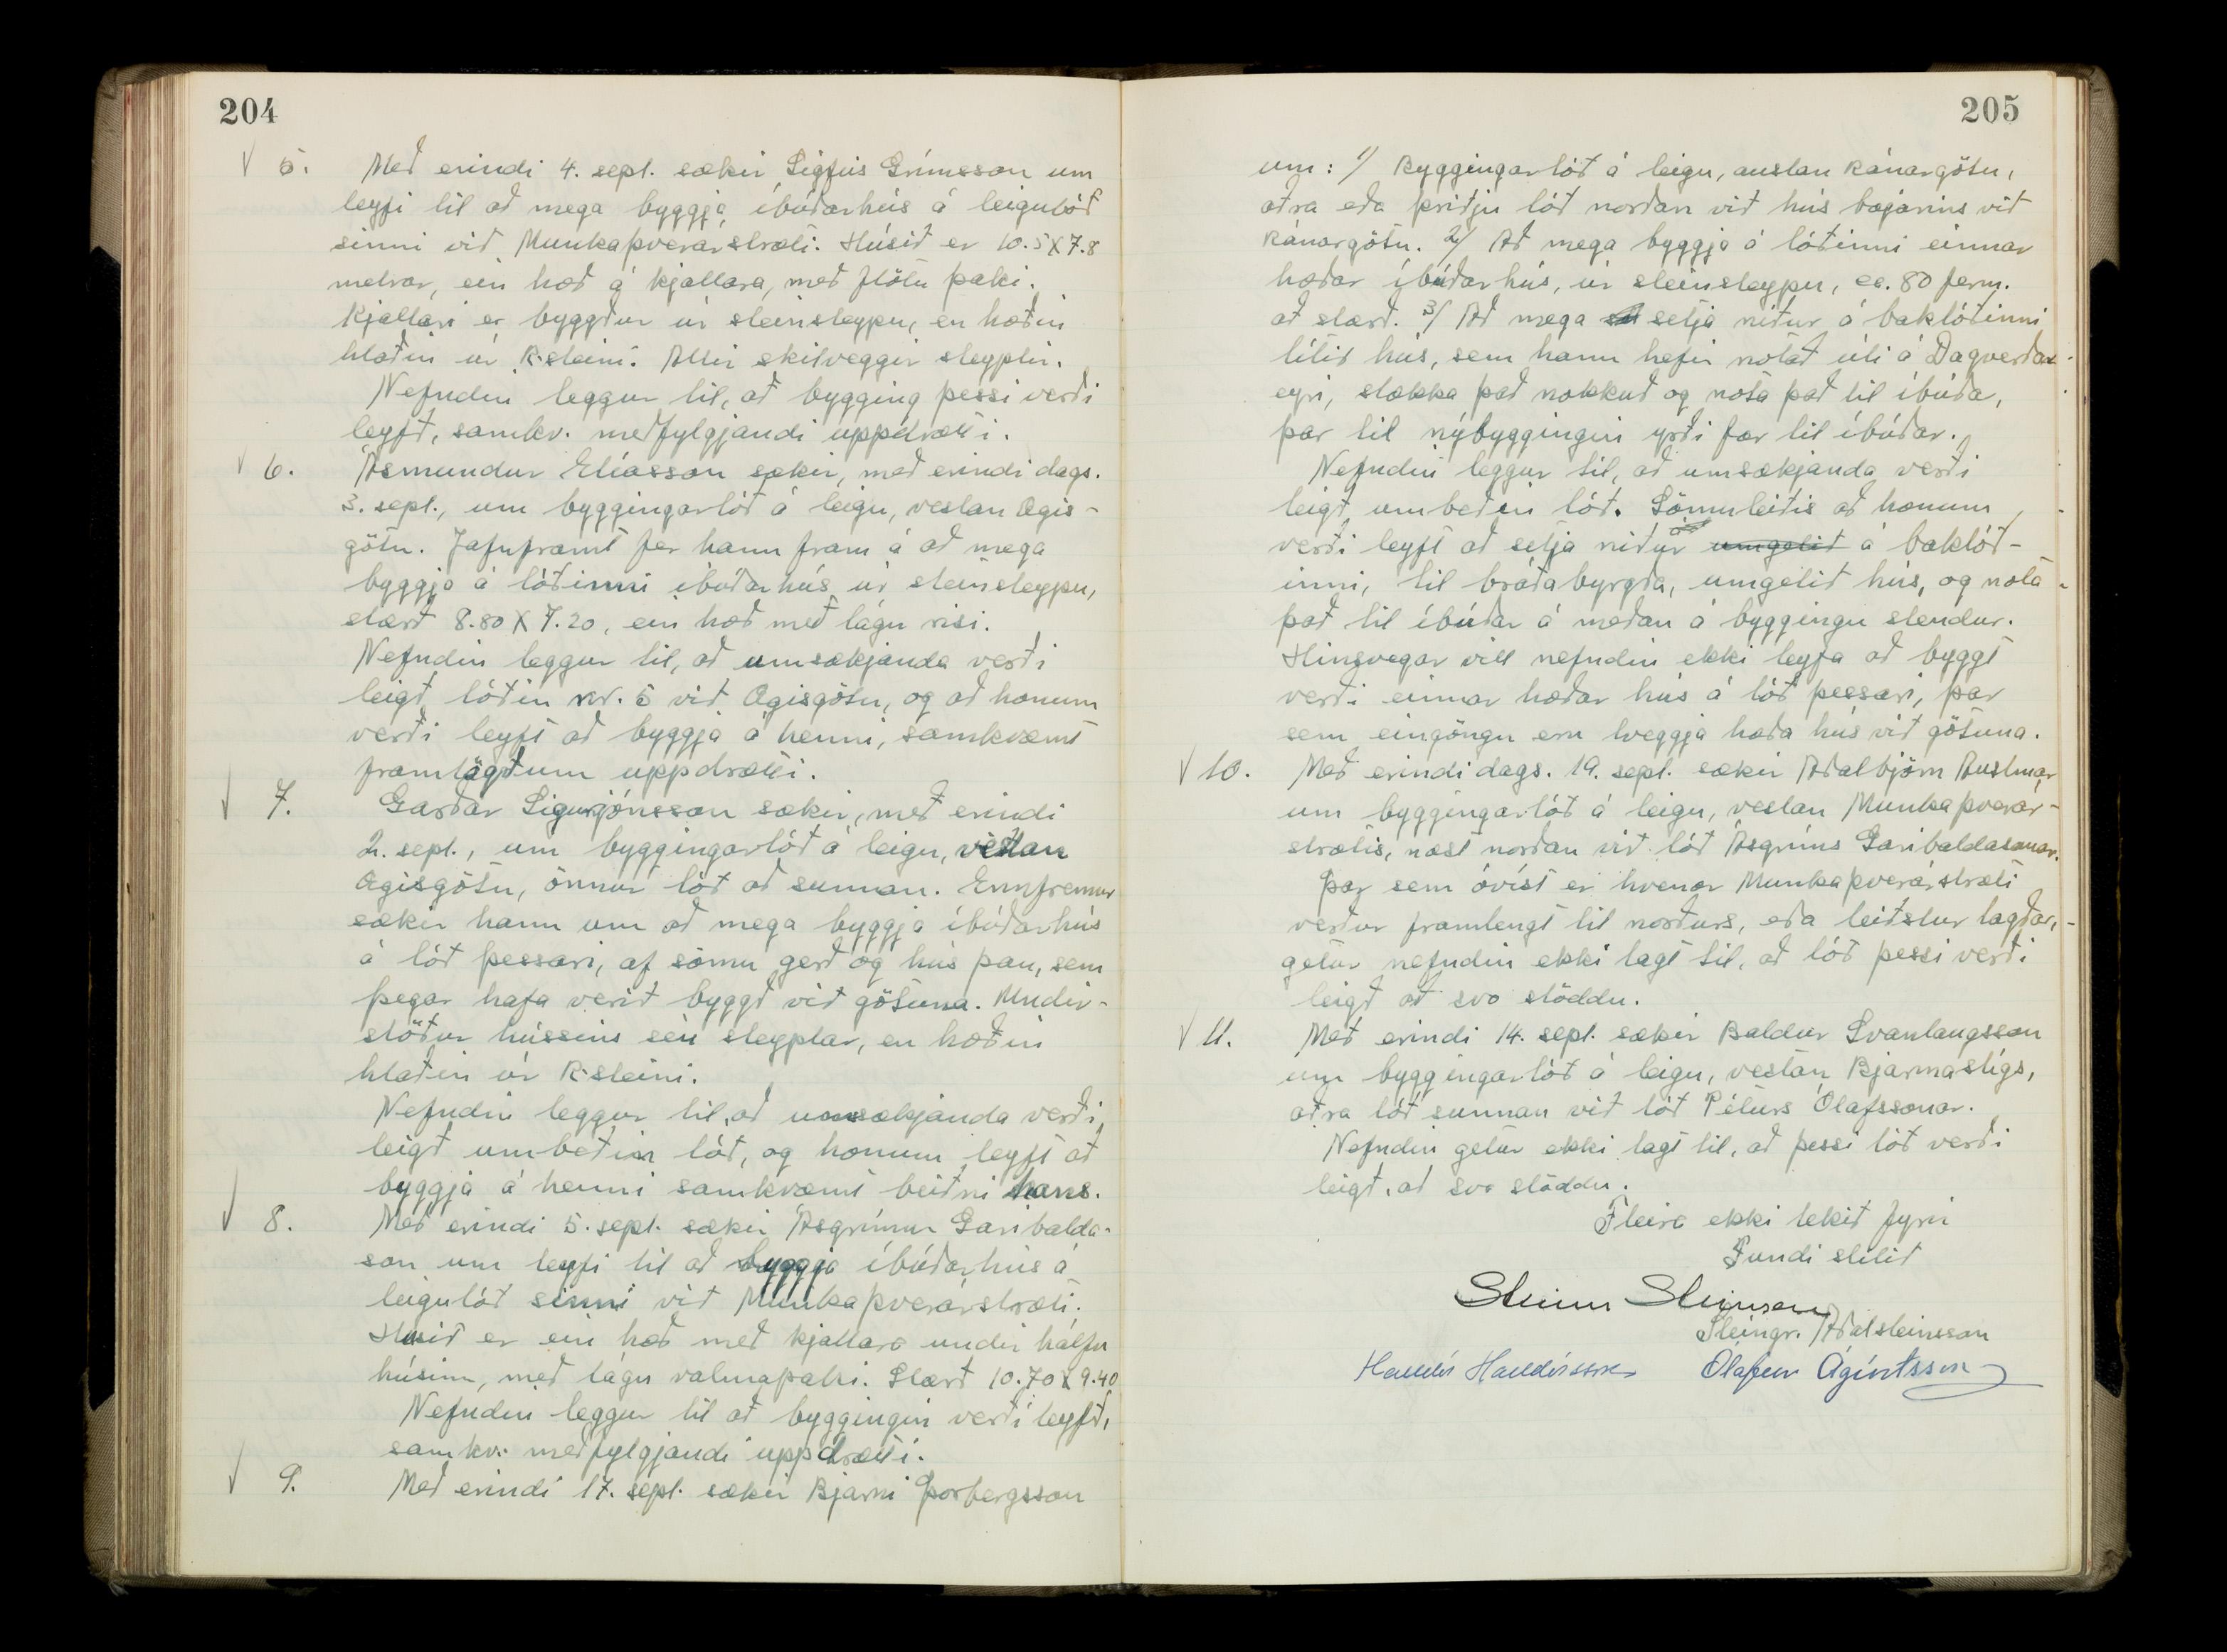 204
5. Með erindi 4. sept. sækir Sigfús Grímsson um
leyfi til að mega byggja íbúðarhús á leigulóð
sinni við Munkaþverárstræti. Húsið er 10.5 X 7.8
metrar, ein hæð á kjallara, með flötu þaki.
Kjallari er byggður úr steinsteypu, en hæðin
hlaðin úr R-steini. Allir skilveggir steyptir.
Nefndin leggur til, að bygging þessi verði
leyfð, samkv. meðfylgjandi uppdrætti.
6. Ásmundur Elíasson sækir, með erindi dags.
3. sept., um byggingarlóð á leigu, vestan Ægis-
götu. Jafnframt fer hann fram á að mega
byggja á lóðinni íbúðarhús úr steinsteypu,
stærð 8.80 X 7.20, ein hæð með lágu risi.
Nefndin leggur til, að umsækjanda verði
leigð lóðin nr. 5 við Ægisgötu, og að honum
verði leyft að byggja á henni, samkvæmt
framlögðum uppdrætti.
7. Garðar Sigurjónsson sækir, með erindi
2. sept., um byggingarlóð á leigu, vestan
Ægisgötu, önnur lóð að sunnan. Ennfremur
sækir hann um að mega byggja íbúðarhús
á lóð þessari, af sömu gerð og hús þau, sem
þegar hafa verið byggð við götuna. Undir-
stöður hússins séu steyptar, en hæðin
hlaðin úr R-steini.
Nefndin leggur til, að umsækjanda verði
leigð umbeðin lóð, og honum leyft að
byggja á henni samkvæmt beiðni hans.
8. Með erindi 5. sept. sækir Ásgrímur Garibalda-
son um leyfi til að byggja íbúðarhús á
leigulóð sinni við Munkaþverárstræti.
Húsið er ein hæð með kjallara undir hálfu
húsinu, með lágu valmaþaki. Stærð 10.70 X 9.40
Nefndin leggur til að byggingin verði leyfð,
samkv. meðfylgjandi uppdrætti.
9. Með erindi 17. sept. sækir Bjarni Þorbergsson
205
um: 1/ Byggingarlóð á leigu, austan Ránargötu,
aðra eða þriðju lóð norðan við hús bæjarins við
Ránargötu. 2/ Að mega byggja á lóðinni einnar
hæðar íbúðarhús, úr steinsteypu, ca. 80 ferm.
að stærð. 3/ Að mega setja niður á baklóðinni
lítið hús, sem hann hefir notað úti á Dagverðar-
eyri, stækka það nokkuð og nota það til íbúða,
þar til nýbyggingin yrði fær til íbúðar.
Nefndin leggur til, að umsækjanda verði
leigð umbeðin lóð. Sömuleiðis að honum
verði leyft að setja niður umgetið á baklóð-
inni, til bráðabyrgða, umgetið hús, og nota
það til íbúðar á meðan á byggingu stendur.
Hinsvegar vill nefndin ekki leyfa að byggt
verði einnar hæðar hús á lóð þessari, þar
sem eingöngu eru tveggja hæða hús við götuna.
10. Með erindi dags. 19. sept. sækir Aðalbjörn Austmar
um byggingarlóð á leigu, vestan Munkaþverár-
strætis, næst norðan við lóð Ásgríms Garibaldasonar.
Þar sem óvíst er hvenær Munkaþverárstræti
verður framlengt til norðurs, eða leiðslur lagðar,
getur nefndin ekki lagt til, að lóð þessi verði
leigð að svo stöddu.
11. Með erindi 14. sept. sækir Baldur Svanlaugsson
um byggingarlóð á leigu, vestan Bjarmastígs,
aðra lóð sunnan við lóð Péturs Ólafssonar.
Nefndin getur ekki lagt til, að þessi lóð verði
leigð, að svo stöddu.
Fleira ekki tekið fyrir
Fundi slitið
Steinn Steinsen
Steingr. Aðalsteinsson
Halldór Halldórsson Ólafur Ágústsson